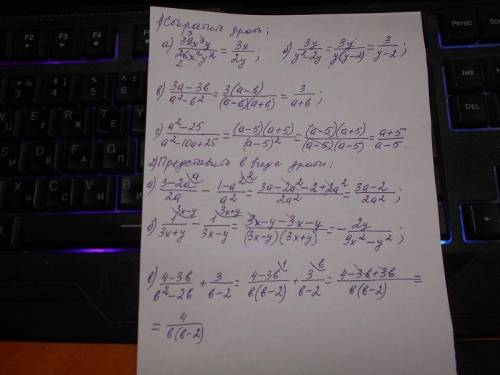 1) Сократить дробь:
а) 39x³y/26x²y² = 3x/2y; б) 3y/(y²-2y) = 3y/(y(y-2)) = 3/(y-2);
в) (3a-3b)/(a²-b²) = 3(a-b)/((a-b)(a+b)) = 3/(a+b);
г) (a²-25)/(a²-10a+25) = (a-5)(a+5)/(a-5)² = (a-5)(a+5)/((a-5)(a-5)) = (a+5)/(a-5).
2) Представить в виде дроби:
а) (3-2a)/2a - (1-a²)/a² = (3a-2a²-2+2a²)/2a² = (3a-2)/2a²;
б) 1/(3x+y) - 1/(3x-y) = (3x-y-3x-y)/((3x-y)(3x+y)) = -2y/(9x²-y²);
в) (4-3b)/(b²-2b) + 3/(b-2) = (4-3b)/(b(b-2)) + 3/(b-2) = (4-3b+3b)/(b(b-2)) =
= 4/(b(b-2)).